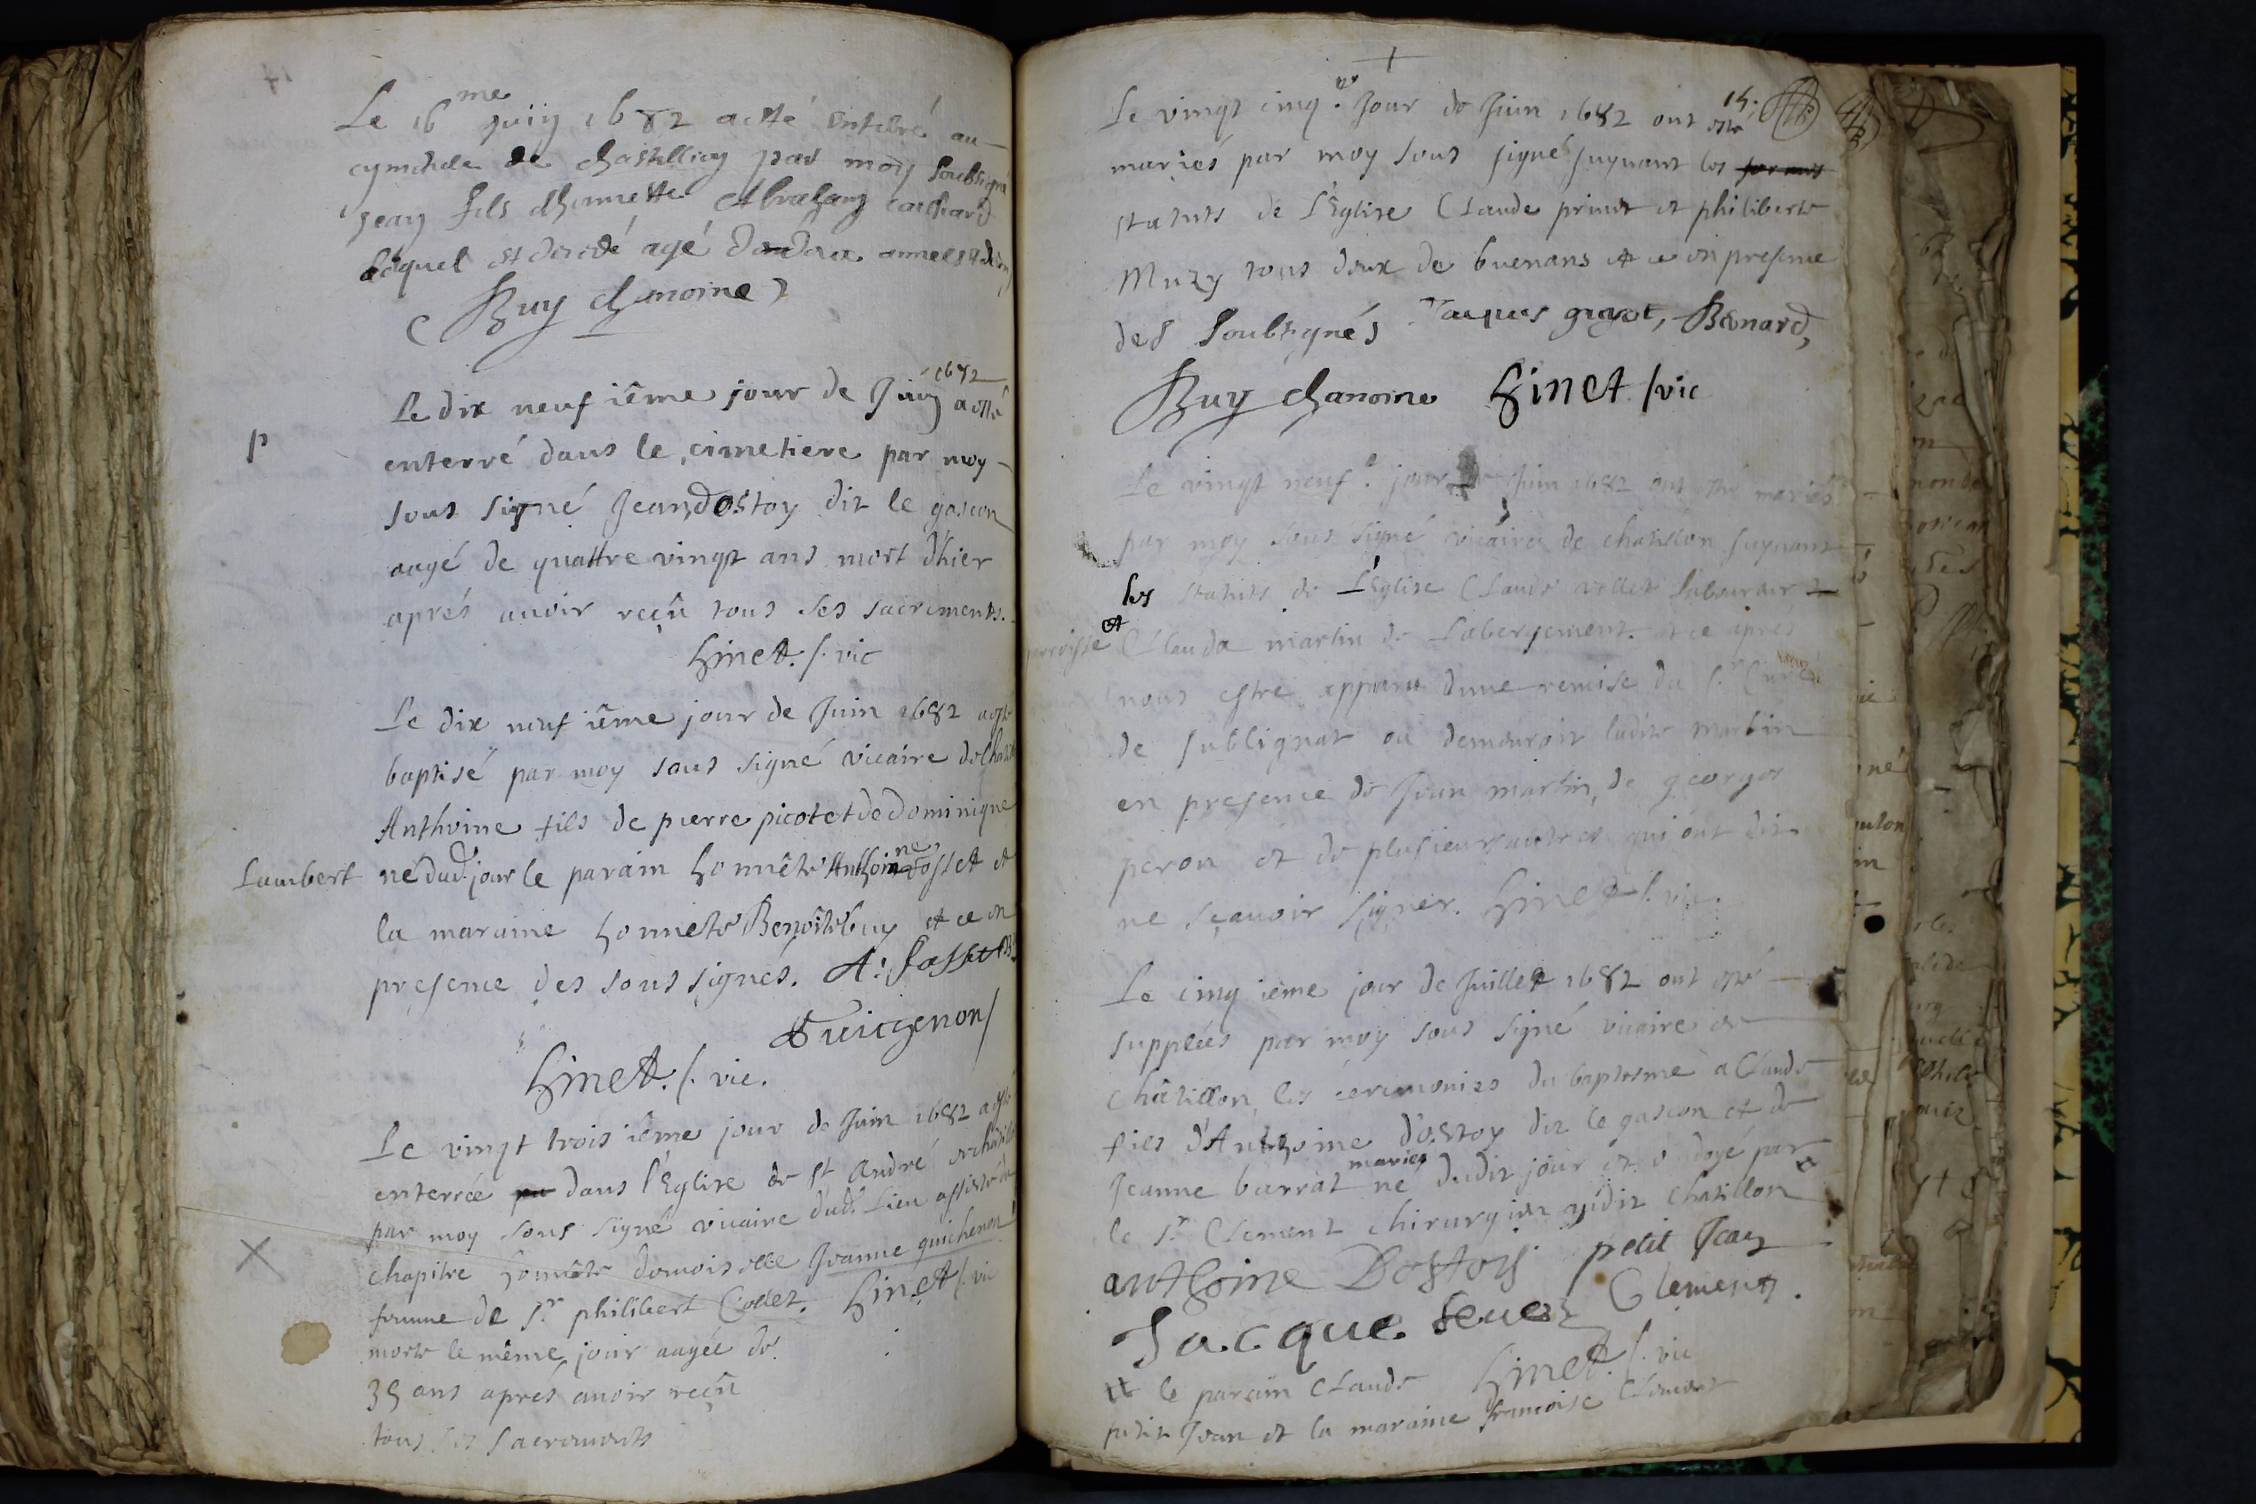 Le 16me Juin 1682 a esté enterré au
cymetiere de chastillion par moy soubsigné
Jean fils dhonnette Abraham
lequel est decedé agé de deux annees
Buy chanoine
Le dix neuf iême jour de Juin 1682 a esté
enterré dans le cimetiere par moy
p
sous signé Jean dostoy dit le gascon
aagé de quattre vingt ans mort d'hier
aprés avoir reçû tous ses sacrements.
hinet. s. vic
Le dix neuf iême jour de Juin 1682 a esté
baptisé par moy sous signé vicaire de
Anthoine fils de pierre picotet de dominique
Lambert né dud. jour le parain honnête Anthoine fosset et
la maraine honnete Benoite buy et ce en
presence des sous signés. A: fosset
Guichenon
hinet. s. vic.
Le vingt trois iême jour de Juin 1682 a esté
enterrée dans l'Eglise de st André de
par moy sous signé vicaire dud. Lieu assisté du
chapitre honnête demoiselle Jeanne guichenon
femme de Sr philibert Collet. hinet s. vic
morte le même jour aagée de
35 ans aprés avoir reçû
tous ses sacrements
Le vingt cinq.e Jour de Juin 1682 ont esté
15.
mariés par moy sous signé suyvant les
statuts de l'Eglise Claude et philiberte
Muzy tous deux de buenans et ce en presence
des soubsignés Jacques guyot, Benard,
Buy chanoine hinet s. vic
Le vingt neuf.e jour de Juin 1682 ont esté mariés
par moy sous signé vicaire de chatillon suyvant
les statuts de L'Eglise Claude vollet laboureur
et Clauda martin de Labergement. et ce aprés
parroisse
nous estre apparu dune remise du sr Curé
de sublignat ou demeuroit ladite martin
en presence de Jean martin, de georges
peron et de plusieurs autres qui ont dit
ne sçavoir signer. hinet s. vic.
Le cinq ieme jour de Juillet 1682 ont esté
suppléés par moy sous signé vicaire de
châtillon les ceremonies du baptesme a Claude
fils d'Anthoine dostoy dit le gascon et de
Jeanne barrat mariés né dudit jour et ondoyé par
le sr Clement chirurgien dudit chatillon
anthoine Dostoy petit Jean
Jacque Clement.
hinet s. vic
le parain Claude
petit Jean et la maraine francoise Clement